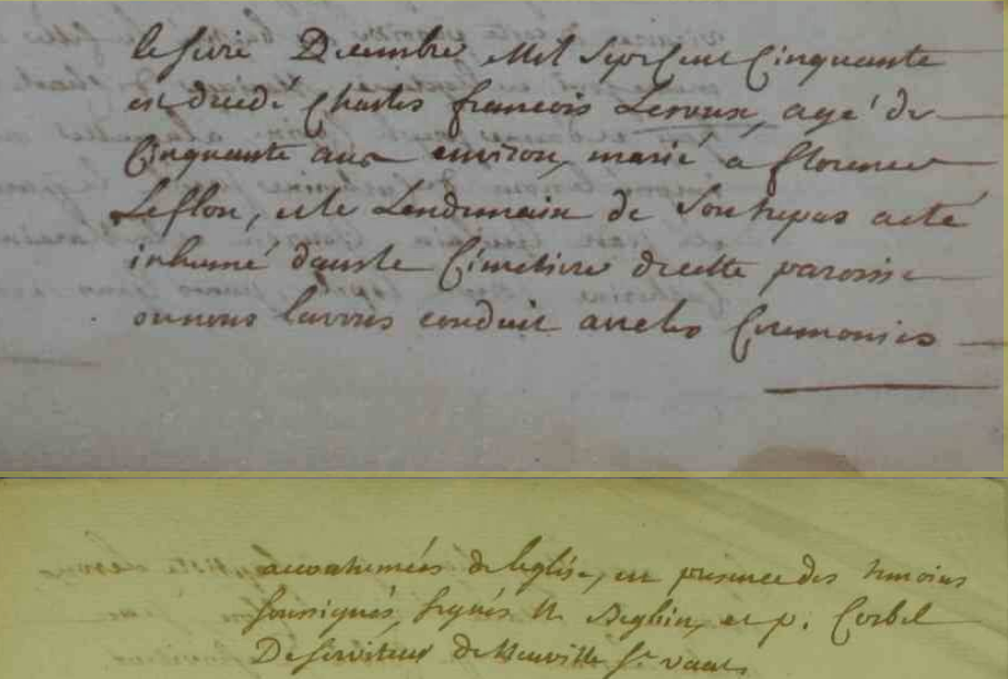 le seize Decembre Mil Sept Cent Cinquante
est decedé Charles francois Leroux, agé de
Cinquante ans environ, marié a florence
Leflon, et le Lendemain de Son trepas a eté
inhumé dans le Cimetiere de cette paroisse
ou nous l'avons conduit avec les Ceremonies
accoutumées de l'eglise, en presence des temoins
soussignés, signés N. Beghin, et p. Corbel
Desserviteur de Neuville St vaast